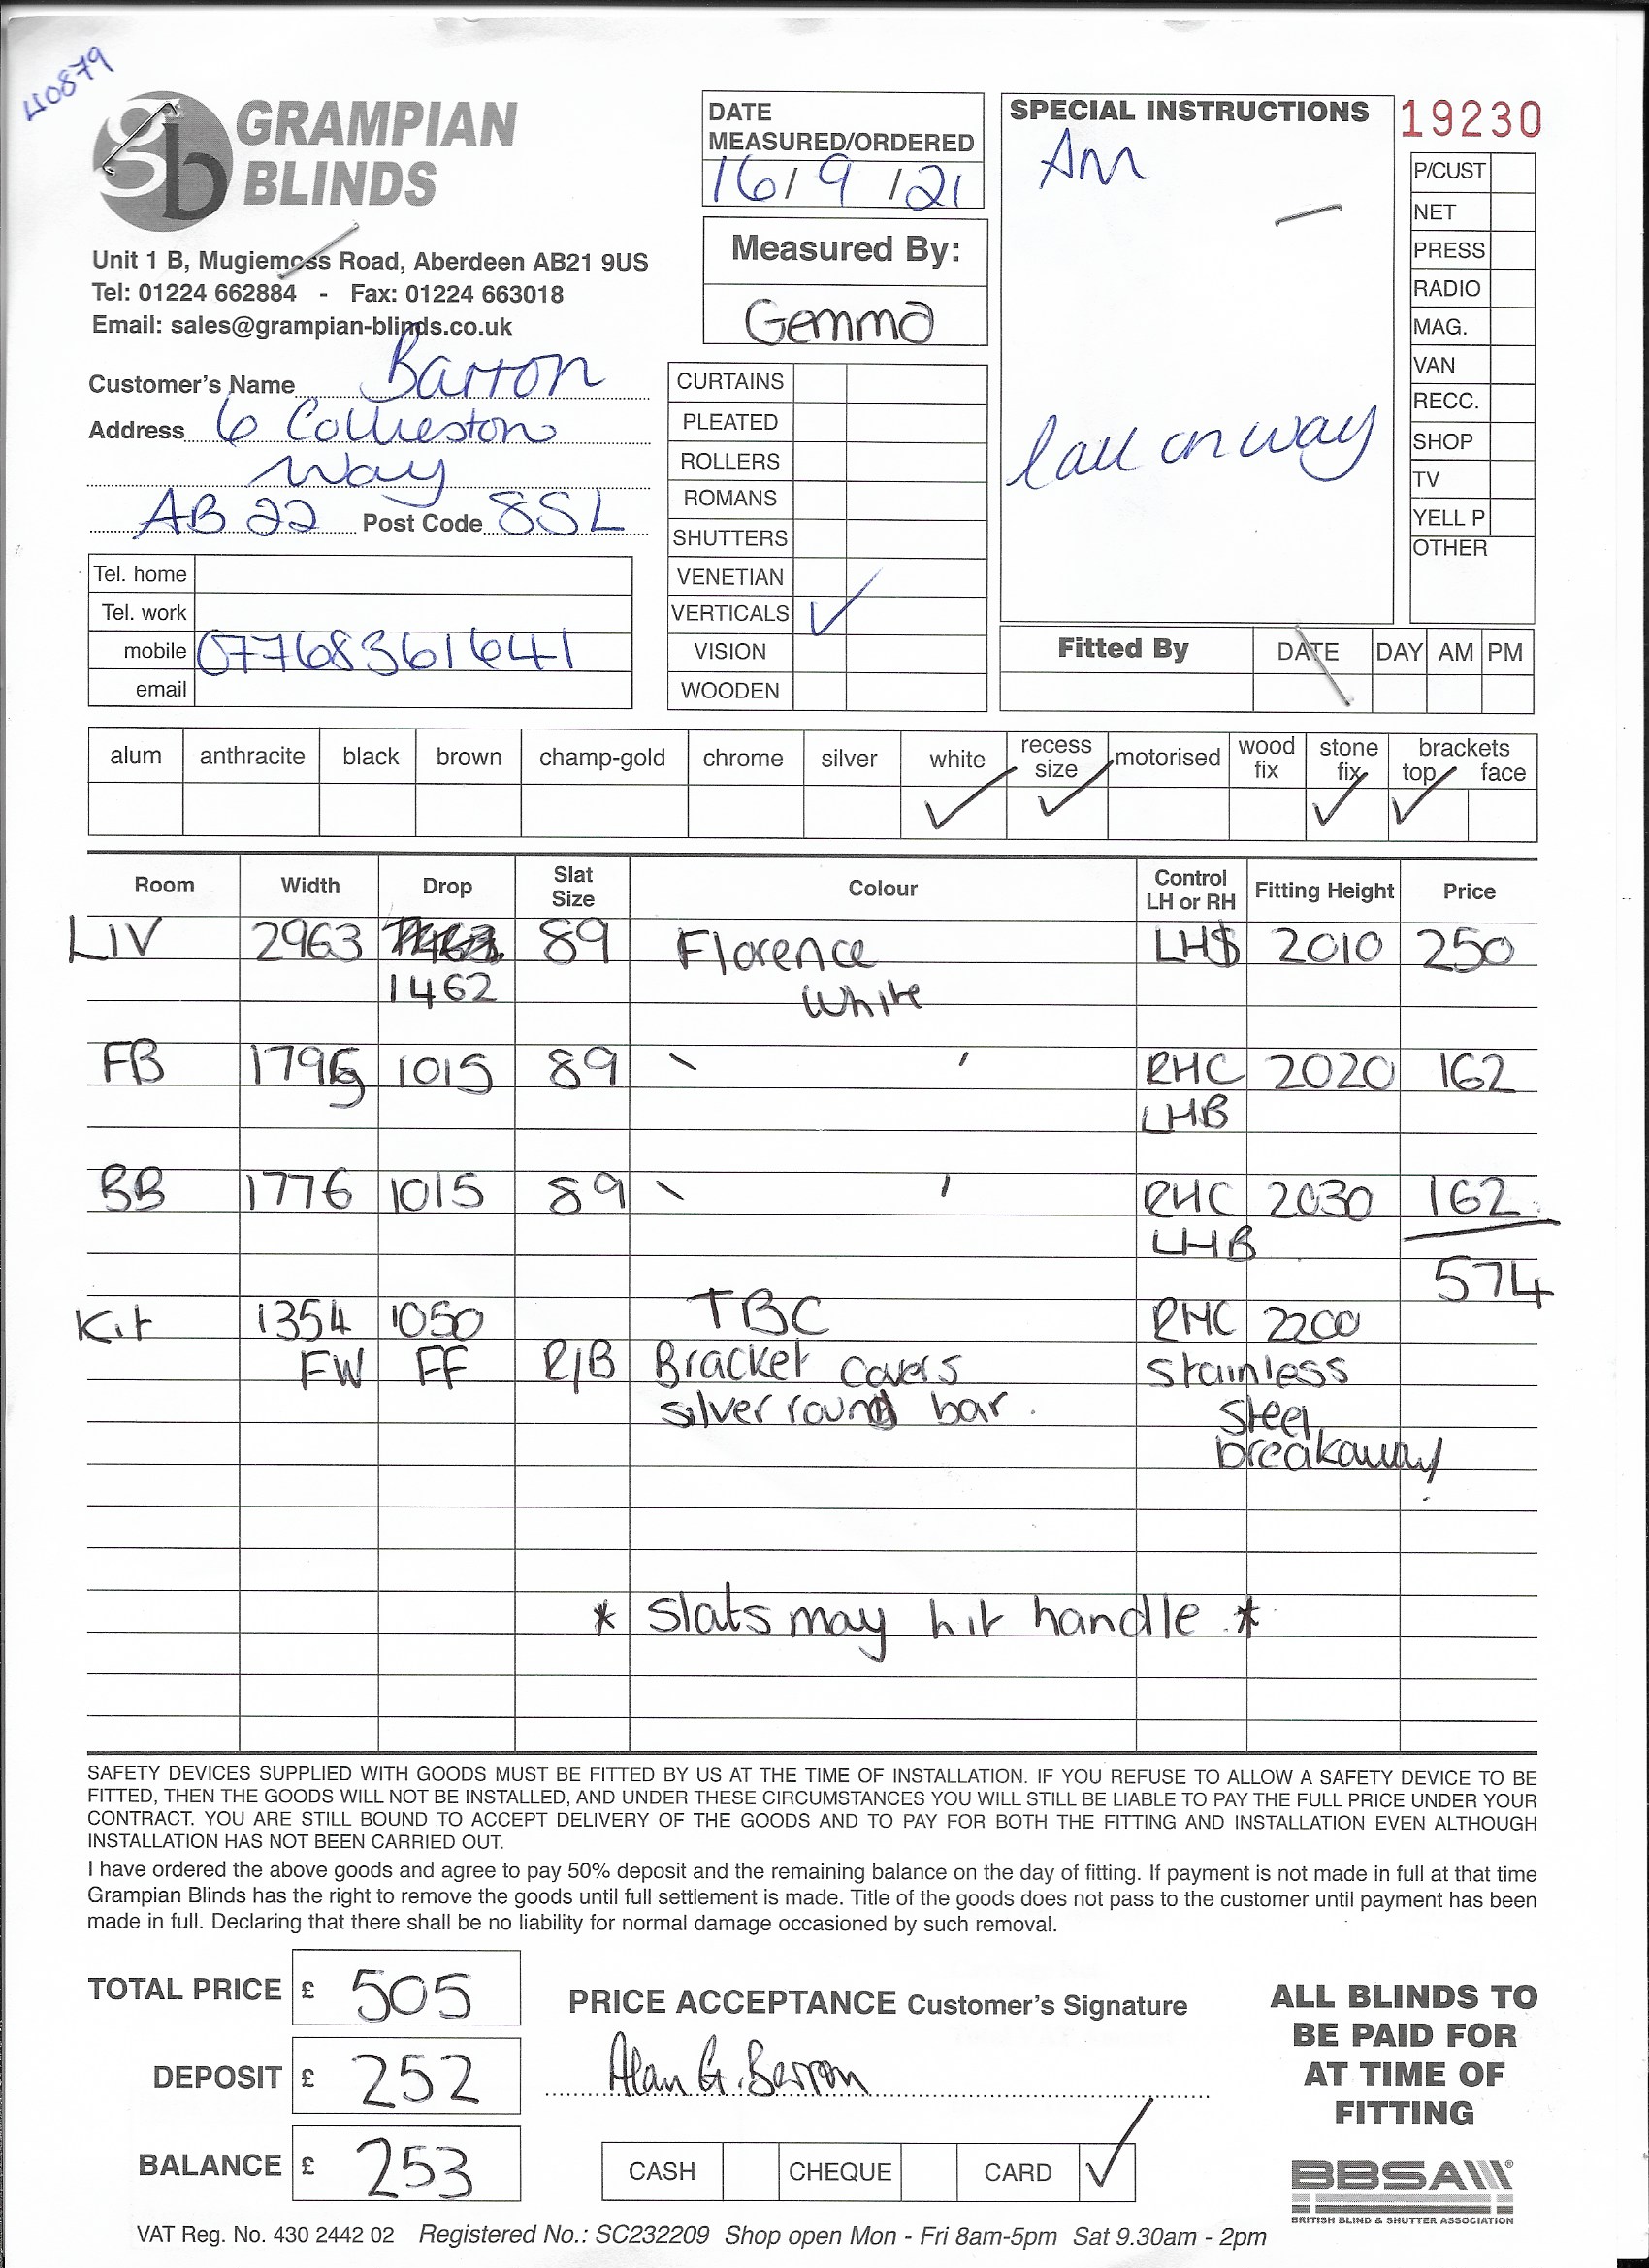 40879
GRAMPIAN
BLINDS
Unit 1 B, Mugiemoss Road, Aberdeen AB21 9US
Tel: 01224 662884 - Fax: 01224 663018
Email: sales@grampian-blinds.co.uk
Customer's Name Barron
Address 6 Collieston
Way
AB22 Post Code 8SL
Tel. home
Tel. work
mobile 07768361641
email
DATE
MEASURED/ORDERED
16/9/21
Measured By:
Gemma
CURTAINS
PLEATED
ROLLERS
ROMANS
SHUTTERS
VENETIAN
VERTICALS ✓
VISION
WOODEN
SPECIAL INSTRUCTIONS
Am
Call on way
19230
P/CUST
NET
PRESS
RADIO
MAG.
VAN
RECC.
SHOP
TV
YELL P
OTHER
Fitted By DATE DAY AM PM
alum anthracite black brown champ-gold chrome silver white ✓ recess size ✓ motorised wood fix stone fix ✓ brackets top ✓ face
Room Width Drop Slat Size Colour Control LH or RH Fitting Height Price
LIV 2963 89 Florence LH$ 2010 250
1462 White
FB 1795 1015 89 \ ' RHC 2020 162
LHB
BB 1776 1015 89 \ ' RHC 2030 162
LHB
574
Kit 1354 1050 TBC RHC 2200
FW FF R/B Bracket covers Stainless
silver round bar. Steel
breakaway
* Slats may hit handle *
SAFETY DEVICES SUPPLIED WITH GOODS MUST BE FITTED BY US AT THE TIME OF INSTALLATION. IF YOU REFUSE TO ALLOW A SAFETY DEVICE TO BE
FITTED, THEN THE GOODS WILL NOT BE INSTALLED, AND UNDER THESE CIRCUMSTANCES YOU WILL STILL BE LIABLE TO PAY THE FULL PRICE UNDER YOUR
CONTRACT. YOU ARE STILL BOUND TO ACCEPT DELIVERY OF THE GOODS AND TO PAY FOR BOTH THE FITTING AND INSTALLATION EVEN ALTHOUGH
INSTALLATION HAS NOT BEEN CARRIED OUT.
I have ordered the above goods and agree to pay 50% deposit and the remaining balance on the day of fitting. If payment is not made in full at that time
Grampian Blinds has the right to remove the goods until full settlement is made. Title of the goods does not pass to the customer until payment has been
made in full. Declaring that there shall be no liability for normal damage occasioned by such removal.
TOTAL PRICE £ 505
DEPOSIT £ 252
BALANCE £ 253
PRICE ACCEPTANCE Customer's Signature
Alan G. Barron
CASH CHEQUE CARD ✓
ALL BLINDS TO
BE PAID FOR
AT TIME OF
FITTING
BBSA
BRITISH BLIND & SHUTTER ASSOCIATION
VAT Reg. No. 430 2442 02 Registered No.: SC232209 Shop open Mon - Fri 8am-5pm Sat 9.30am - 2pm